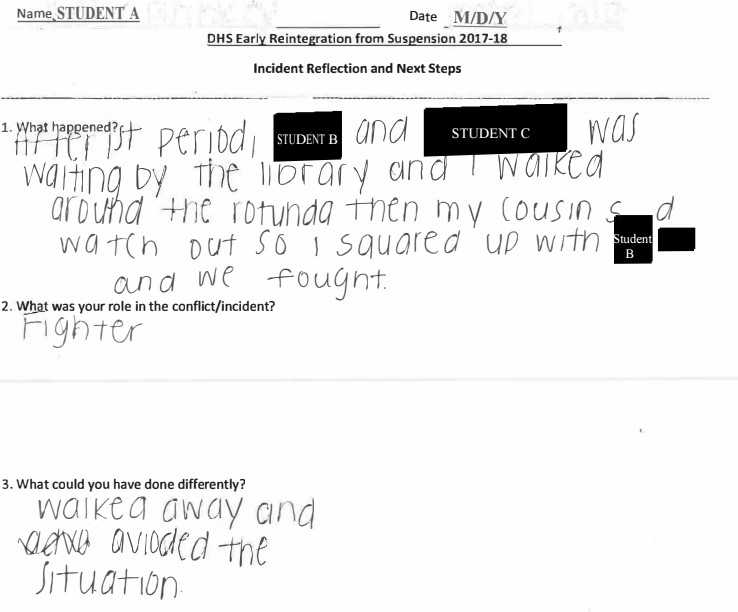 Name STUDENT A Date M/D/Y
DHS Early Reintegration from Suspension 2017-18
Incident Reflection and Next Steps
1. What happened?
After 1st period, STUDENT B and STUDENT C was
waiting by the library and I walked
around the rotunda then my cousin s d
watch out so I squared up with Student B
and we fought.
2. What was your role in the conflict/incident?
Fighter
3. What could you have done differently?
walked away and
avioded the
situation.